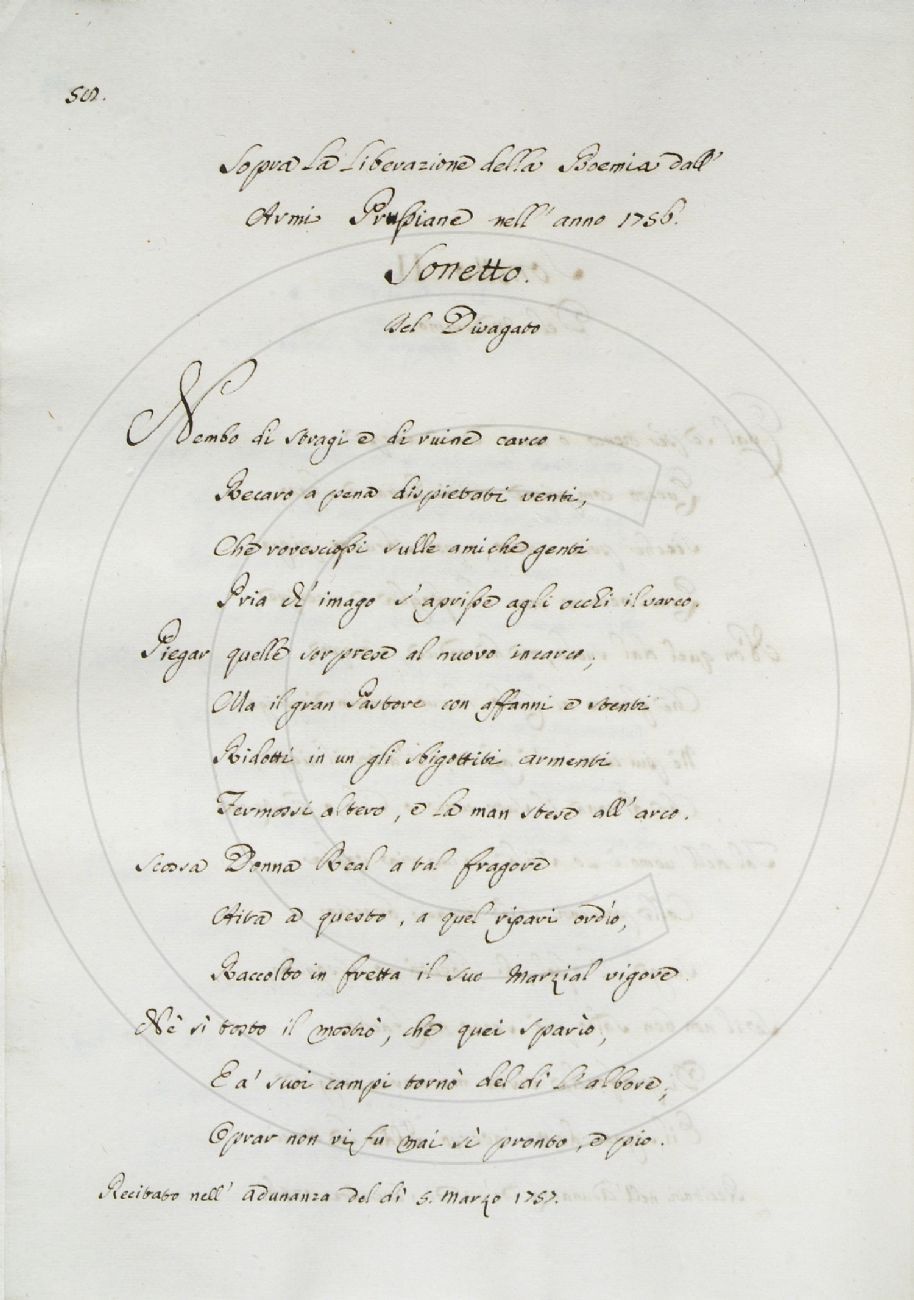 58.
Sopra la Liberazione della Boemia dall'
Armi Prussiane nell' anno 1756.
Sonetto.
Del Divagato
Nembo di stragi e di ruine carco
Recaro a pena dispietati venti,
Che rovesciossi sulle amiche genti
Pria ch' imago s' aprisse agli occhi il varco.
Piegar quelle sorprese al nuovo incarco,
Ma il gran Pastore con affanni e stenti
Ridotti in un gli sbigottiti armenti
Fermossi altero, e la man stese all' arco.
Scossa Donna Real a tal fragore
Aita a questo, a quel ripari ordìo,
Raccolto in fretta il suo Marzial vigore
Nè sì tosto il mostrò, che quei sparìo,
E a' suoi campi tornò del dì l' albore,
Oprar non vi fu mai sì pronto, e pio.
Recitato nell' adunanza del dì 5. Marzo 1757.